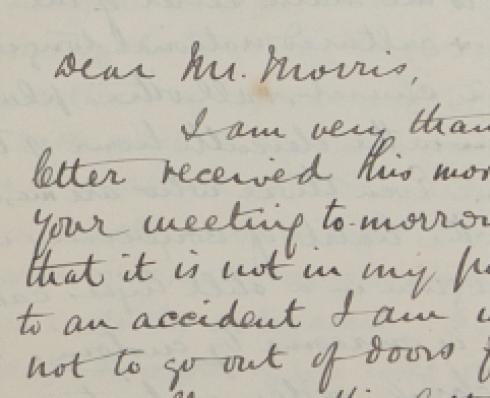 Dear Mr. Morris,
I am very than
letter received this mor
your meeting to-morrow
that it is not in my po
to an accident I am
not to go out of doors